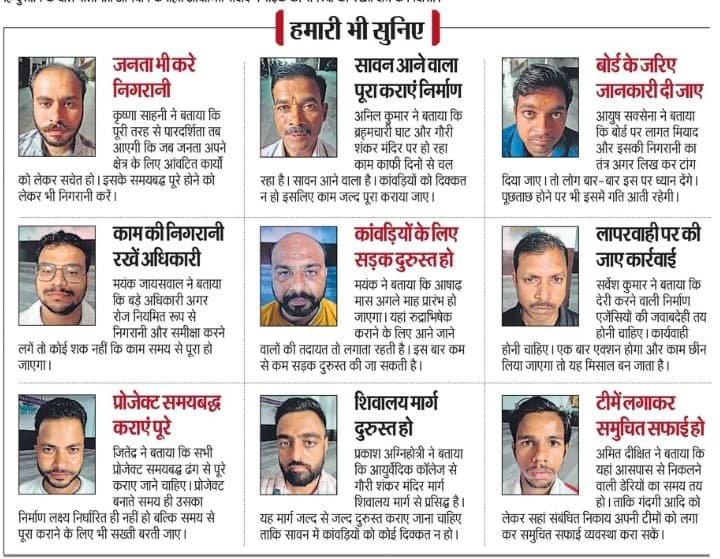 हमारी भी सुनिए
जनता भी करे
निगरानी
कृष्णा साहनी ने बताया कि
पूरी तरह से पारदर्शिता तब
आएगी कि जब जनता अपने
क्षेत्र के लिए आंवटित कार्यों
को लेकर सचेत हो। इसके समयबद्ध पूरे होने को
लेकर भी निगरानी करें।
सावन आने वाला
पूरा कराएं निर्माण
अनिल कुमार ने बताया कि
ब्रह्मचारी घाट और गौरी
शंकर मंदिर पर हो रहा
काम काफी दिनों से चल
रहा है। सावन आने वाला है। कांवड़ियों को दिक्कत
न हो इसलिए काम जल्द पूरा कराया जाए।
बोर्ड के जरिए
जानकारी दी जाए
आयुष सक्सेना ने बताया
कि बोर्ड पर लागत मियाद
और इसकी निगरानी का
तंत्र अगर लिख कर टांग
दिया जाए। तो लोग बार-बार इस पर ध्यान देंगे।
पूछताछ होने पर भी इसमें गति आती रहेगी।
काम की निगरानी
रखें अधिकारी
मयंक जायसवाल ने बताया
कि बड़े अधिकारी अगर
रोज नियमित रूप से
निगरानी और समीक्षा करने
लगें तो कोई शक नहीं कि काम समय से पूरा हो
जाएगा।
कांवड़ियों के लिए
सड़क दुरुस्त हो
मयंक ने बताया कि आषाढ़
मास अगले माह प्रारंभ हो
जाएगा। यहां रुद्राभिषेक
कराने के लिए आने जाने
वालों की तदायत तो लगाता रहती है। इस बार कम
से कम सड़क दुरुस्त की जा सकती है।
लापरवाही पर की
जाए कार्रवाई
सर्वेश कुमार ने बताया कि
देरी करने वाली निर्माण
एजेंसियों की जवाबदेही तय
होनी चाहिए। कार्यवाही
होनी चाहिए। एक बार एक्शन होगा और काम छीन
लिया जाएगा तो यह मिसाल बन जाता है।
प्रोजेक्ट समयबद्ध
कराएं पूरे
जितेंद्र ने बताया कि सभी
प्रोजेक्ट समयबद्ध ढंग से पूरे
कराए जाने चाहिए। प्रोजेक्ट
बनाते समय ही उसका
निर्माण लक्ष्य निर्धारित ही नहीं हो बल्कि समय से
पूरा कराने के लिए भी सख्ती बरती जाए।
शिवालय मार्ग
दुरुस्त हो
प्रकाश अग्निहोत्री ने बताया
कि आयुर्वेदिक कॉलेज से
गौरी शंकर मंदिर मार्ग
शिवालय मार्ग से प्रसिद्ध है।
यह मार्ग जल्द से जल्द दुरुस्त कराए जाना चाहिए
ताकि सावन में कांवड़ियों को कोई दिक्कत न हो।
टीमें लगाकर
समुचित सफाई हो
अमित दीक्षित ने बताया कि
यहां आसपास से निकलने
वाली डेरियों का समय तय
हो। ताकि गंदगी आदि को
लेकर सहां संबंधित निकाय अपनी टीमों को लगा
कर समुचित सफाई व्यवस्था करा सकें।